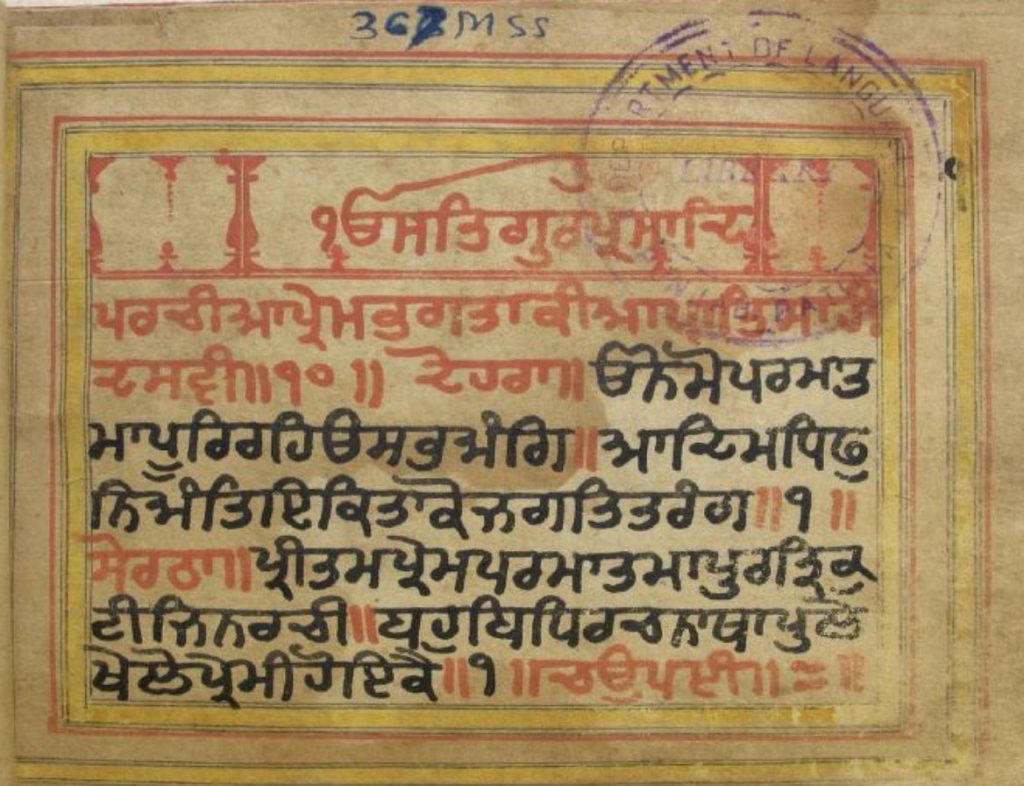 363 MSS
DEPARTMENT OF LANGUAGES
LIBRARY
ੴਸਤਿਗੁਰਪ੍ਰਸਾਦਿ
ਪਰਚੀਆਪ੍ਰੇਮਭਗਤਾਕੀਆਪਾਤਿਸਾਹੀ
ਦਸਵੀ॥੧੦॥ ਦੋਹਰਾ॥ਓਨੋਮੋਪਰਮਾਤ
ਮਾਪੂਰਿਰਹਿਓਸਭਅੰਗਿ॥ਆਦਿਮਧਿਫੁ
ਨਿਅੰਤਿਇਕਿਤਾਕੋਜਗਤਿਤਰੰਗ॥੧॥
ਸੋਰਠਾ॥ਪ੍ਰੀਤਮਪ੍ਰੇਮਪਰਮਾਤਮਾਪੁਰਤ੍ਰਿਕੁ
ਟੀਜਿਨਰਚੀ॥ਬਹੁਬਿਧਿਰਚਨਾਬਾਪੁਲੋ
ਖੇਲੋਪ੍ਰੇਮੀਹੋਇਕੈ॥੧॥ਚਉਪਈ॥